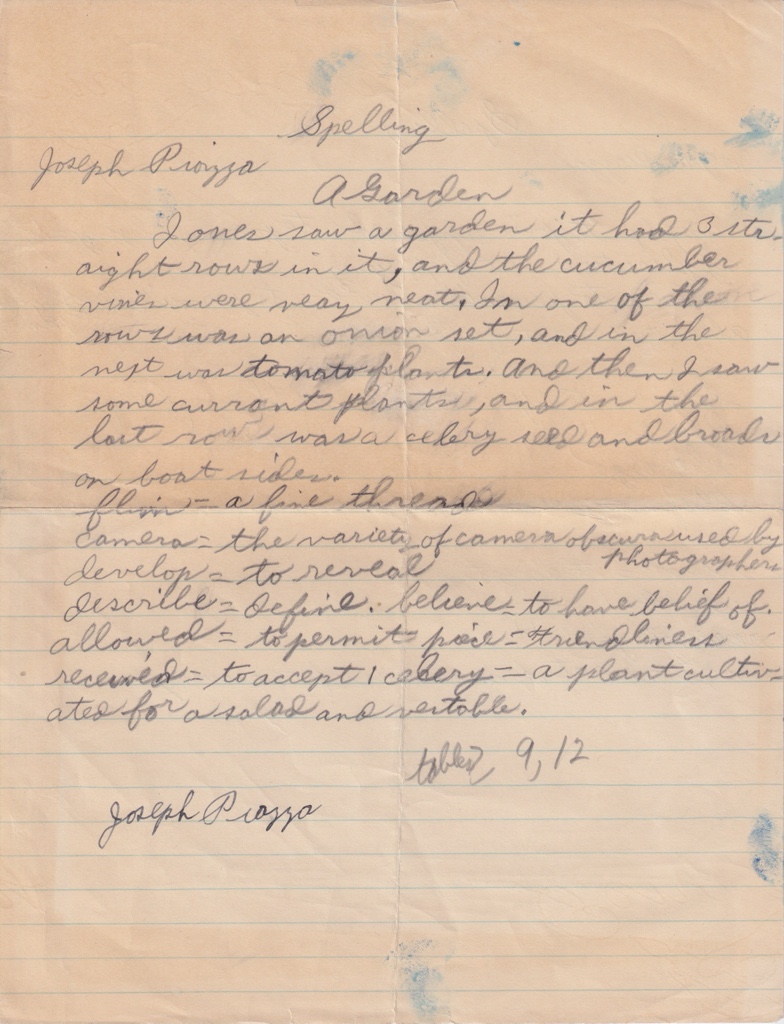 Spelling
Joseph Piazza
A Garden
I ones saw a garden it had 3 str
aight rows in it, and the cucumber
vines were veay neat. In one of the
rows was an onion set, and in the
next was tomato plants. And then I saw
some currant plants, and in the
last row was a celery seed and broads
on boat sides.
flim = a fine thread
camera = the variety of camera obscura used by
photographers
develop = to reveal
describe = define. believe = to have belief of.
allowed = to permit = piece = friendliness
received = to accept / celery = a plant cultiv-
ated for a salad and vestable.
tables 9, 12
Joseph Piazza